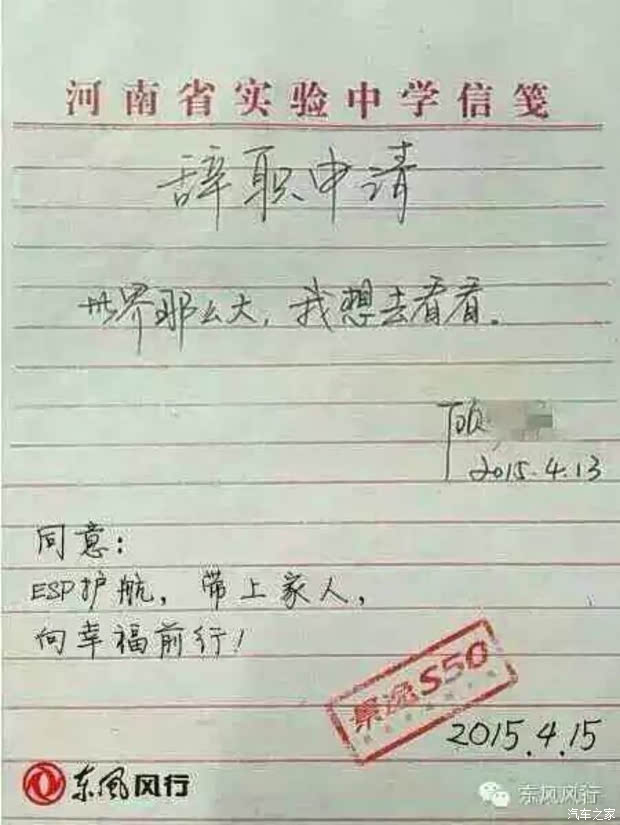 河南省实验中学信笺
辞职申请
世界那么大，我想去看看。
顾
2015.4.13
同意：
ESP护航，带上家人，
向幸福前行！
景逸S50
2015.4.15
东风风行
东风风行
汽车之家